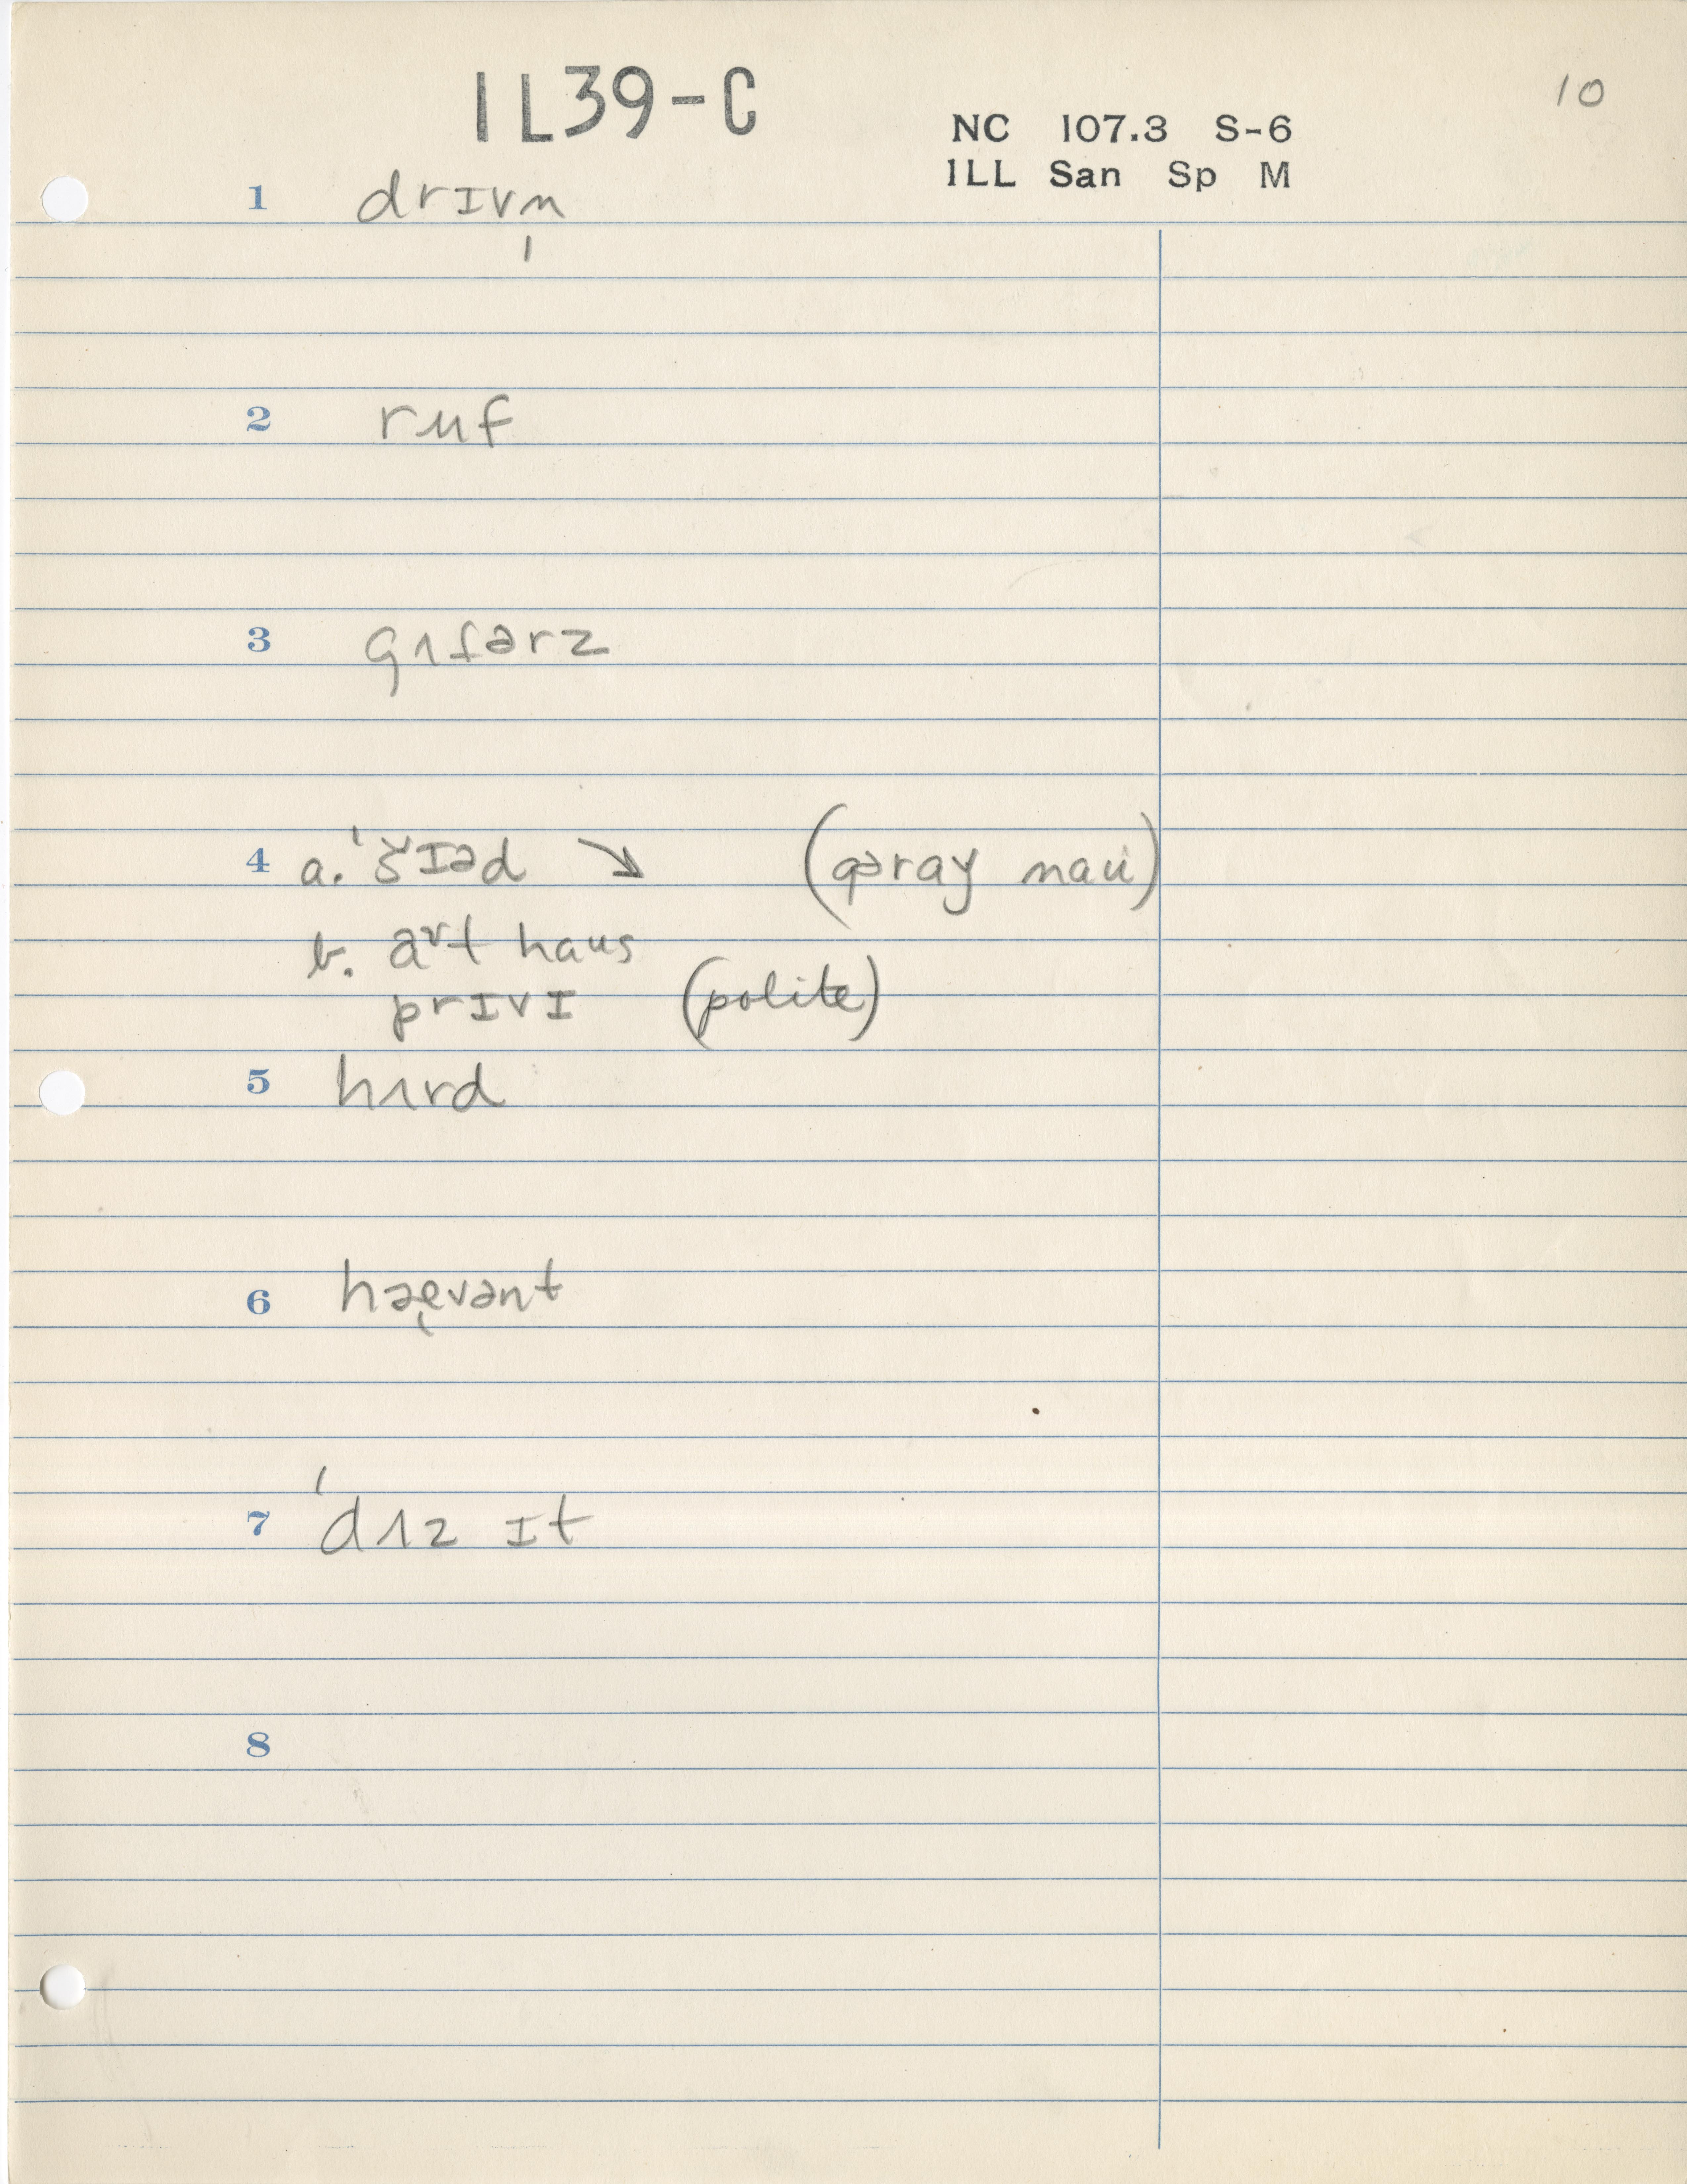 IL39-C
10
NC 107.3 S-6
ILL San Sp M
1 drɪvn̩
2 ruf
3 gʌtərz
4 a. ˈšɪəd ↘ (gəray nau)
b. aʳt haus
prɪvɪ (polite)
5 hʌrd
6 hæ̨vənt
7 ˈdʌz ɪt
8